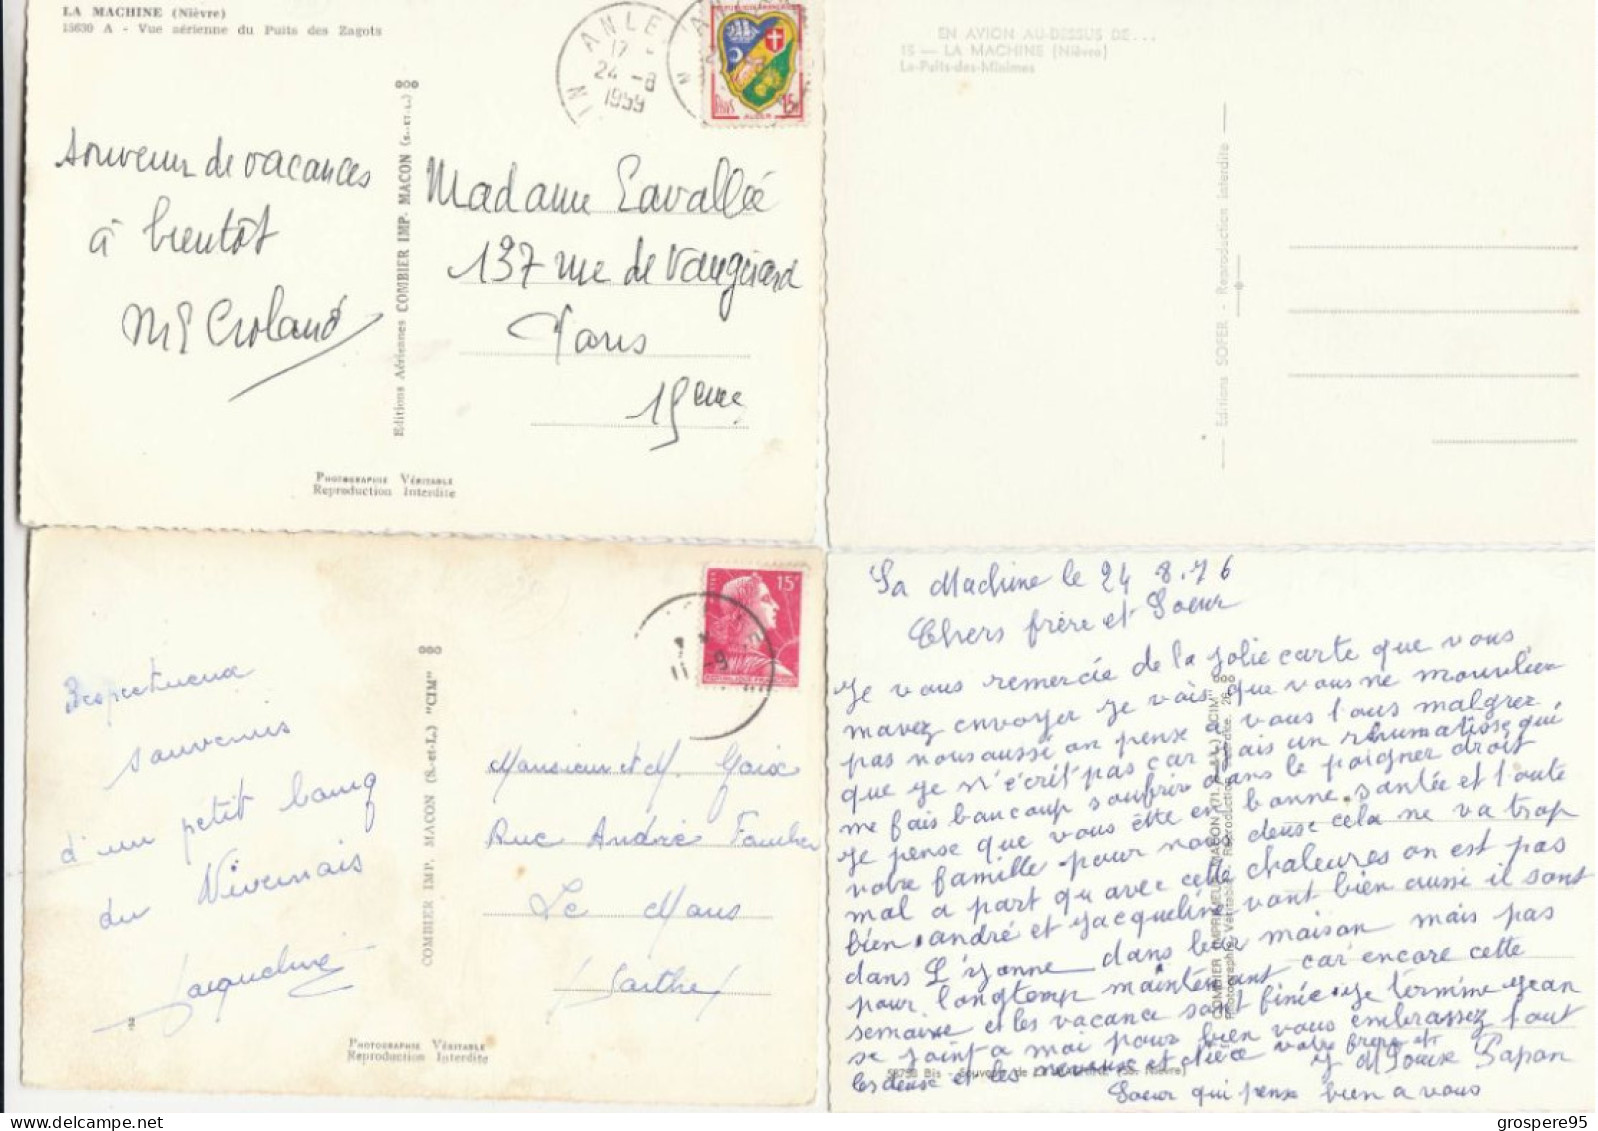 LA MACHINE (Nièvre)
15630 A - Vue aérienne du Puits des Zagots
Souvenir de vacances
à bientôt
Editions Aériennes COMBIER IMP. MACON (S.-ET-L.)
PHOTOGRAPHIE VÉRITABLE
Reproduction Interdite
24 -8
1959
15F
ALGER
Madame Lavallée
137 rue de Vaugirard
Paris
15eme
EN AVION AU-DESSUS DE...
15 — LA MACHINE (Nièvre)
Le-Puits-des-Minimes
Editions SOFER - Reproduction interdite
Respectueux
souvenirs
d'un petit bourg
du Nivernais
Jacqueline
COMBIER IMP. MACON (S.-et-L.) "CIM"
PHOTOGRAPHIE VÉRITABLE
Reproduction Interdite
15F
Monsieur et M. Gaix
Rue André
Le Mans
(Sarthe)
La Machine le 24 8.76
Chers frère et Soeur
Je vous remercie de la jolie carte que vous
mavez envoyer je vais que vous ne
pas nous aussi on pense a vous tous malgrer
que je n'écrit pas car j'ais un rhumatisse qui
me fais baucoup soufrir dans le poigner droit
Je pense que vous ête en bonne santée et toute
votre famille pour nous deuse cela ne va trop
mal a part qu avec cette chaleures on est pas
bien andré et jacqueline vont bien aussi il sont
dans L'yonne dans leur maison mais pas
pour longtemp maintenant car encore cette
semaine et les vacance sont finie je termine jean
se joint a moi pour bien vous embrassez tout
les deuse et les neveuse et nièce votre frère et
M Louise Papon
Soeur qui pense bien a vous
58753 Bis - Souvenir de
COMBIER IMPRIMEUR MACON (71. S.-&-L.) "CIM"
grospere95